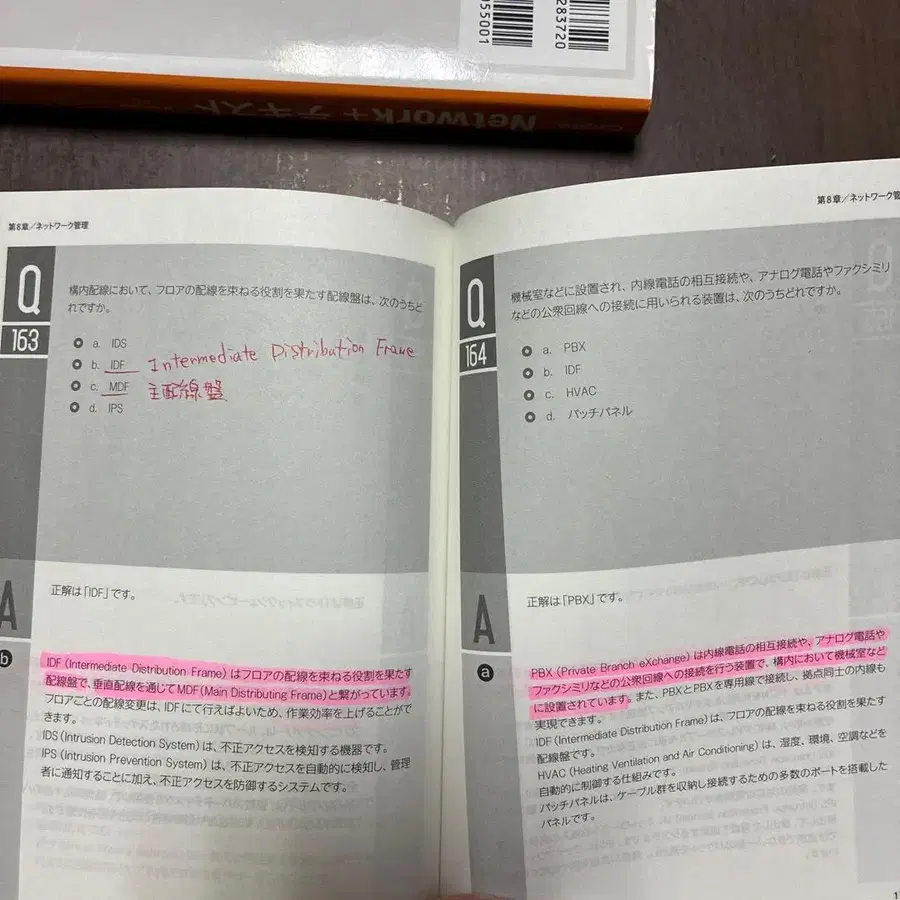 55001
283720
Network+ テキスト
第8章/ネットワーク管理
Q
163
構内配線において、フロアの配線を束ねる役割を果たす配線盤は、次のうちど
れですか。
a. IDS
b. IDF Intermediate Distribution Frame
c. MDF 主配線盤
d. IPS
A
正解は「IDF」です。
b
IDF(Intermediate Distribution Frame)はフロアの配線を束ねる役割を果たす
配線盤で、垂直配線を通じてMDF(Main Distributing Frame)と繋がっています。
フロアごとの配線変更は、IDFにて行えばよいため、作業効率を上げることがで
きます。
IDS(Intrusion Detection System)は、不正アクセスを検知する機器です。
IPS(Intrusion Prevention System)は、不正アクセスを自動的に検知し、管理
者に通知することに加え、不正アクセスを防御するシステムです。
第8章/ネットワーク管
Q
164
機械室などに設置され、内線電話の相互接続や、アナログ電話やファクシミリ
などの公衆回線への接続に用いられる装置は、次のうちどれですか。
a. PBX
b. IDF
c. HVAC
d. パッチパネル
A
正解は「PBX」です。
a
PBX(Private Branch eXchange)は内線電話の相互接続や、アナログ電話や
ファクシミリなどの公衆回線への接続を行う装置で、構内において機械室など
に設置されています。また、PBXとPBXを専用線で接続し、拠点同士の内線も
実現できます。
IDF(Intermediate Distribution Frame)は、フロアの配線を束ねる役割を果たす
配線盤です。
HVAC(Heating Ventilation and Air Conditioning)は、湿度、環境、空調などを
自動的に制御する仕組みです。
パッチパネルは、ケーブル群を収納し接続するための多数のポートを搭載した
パネルです。